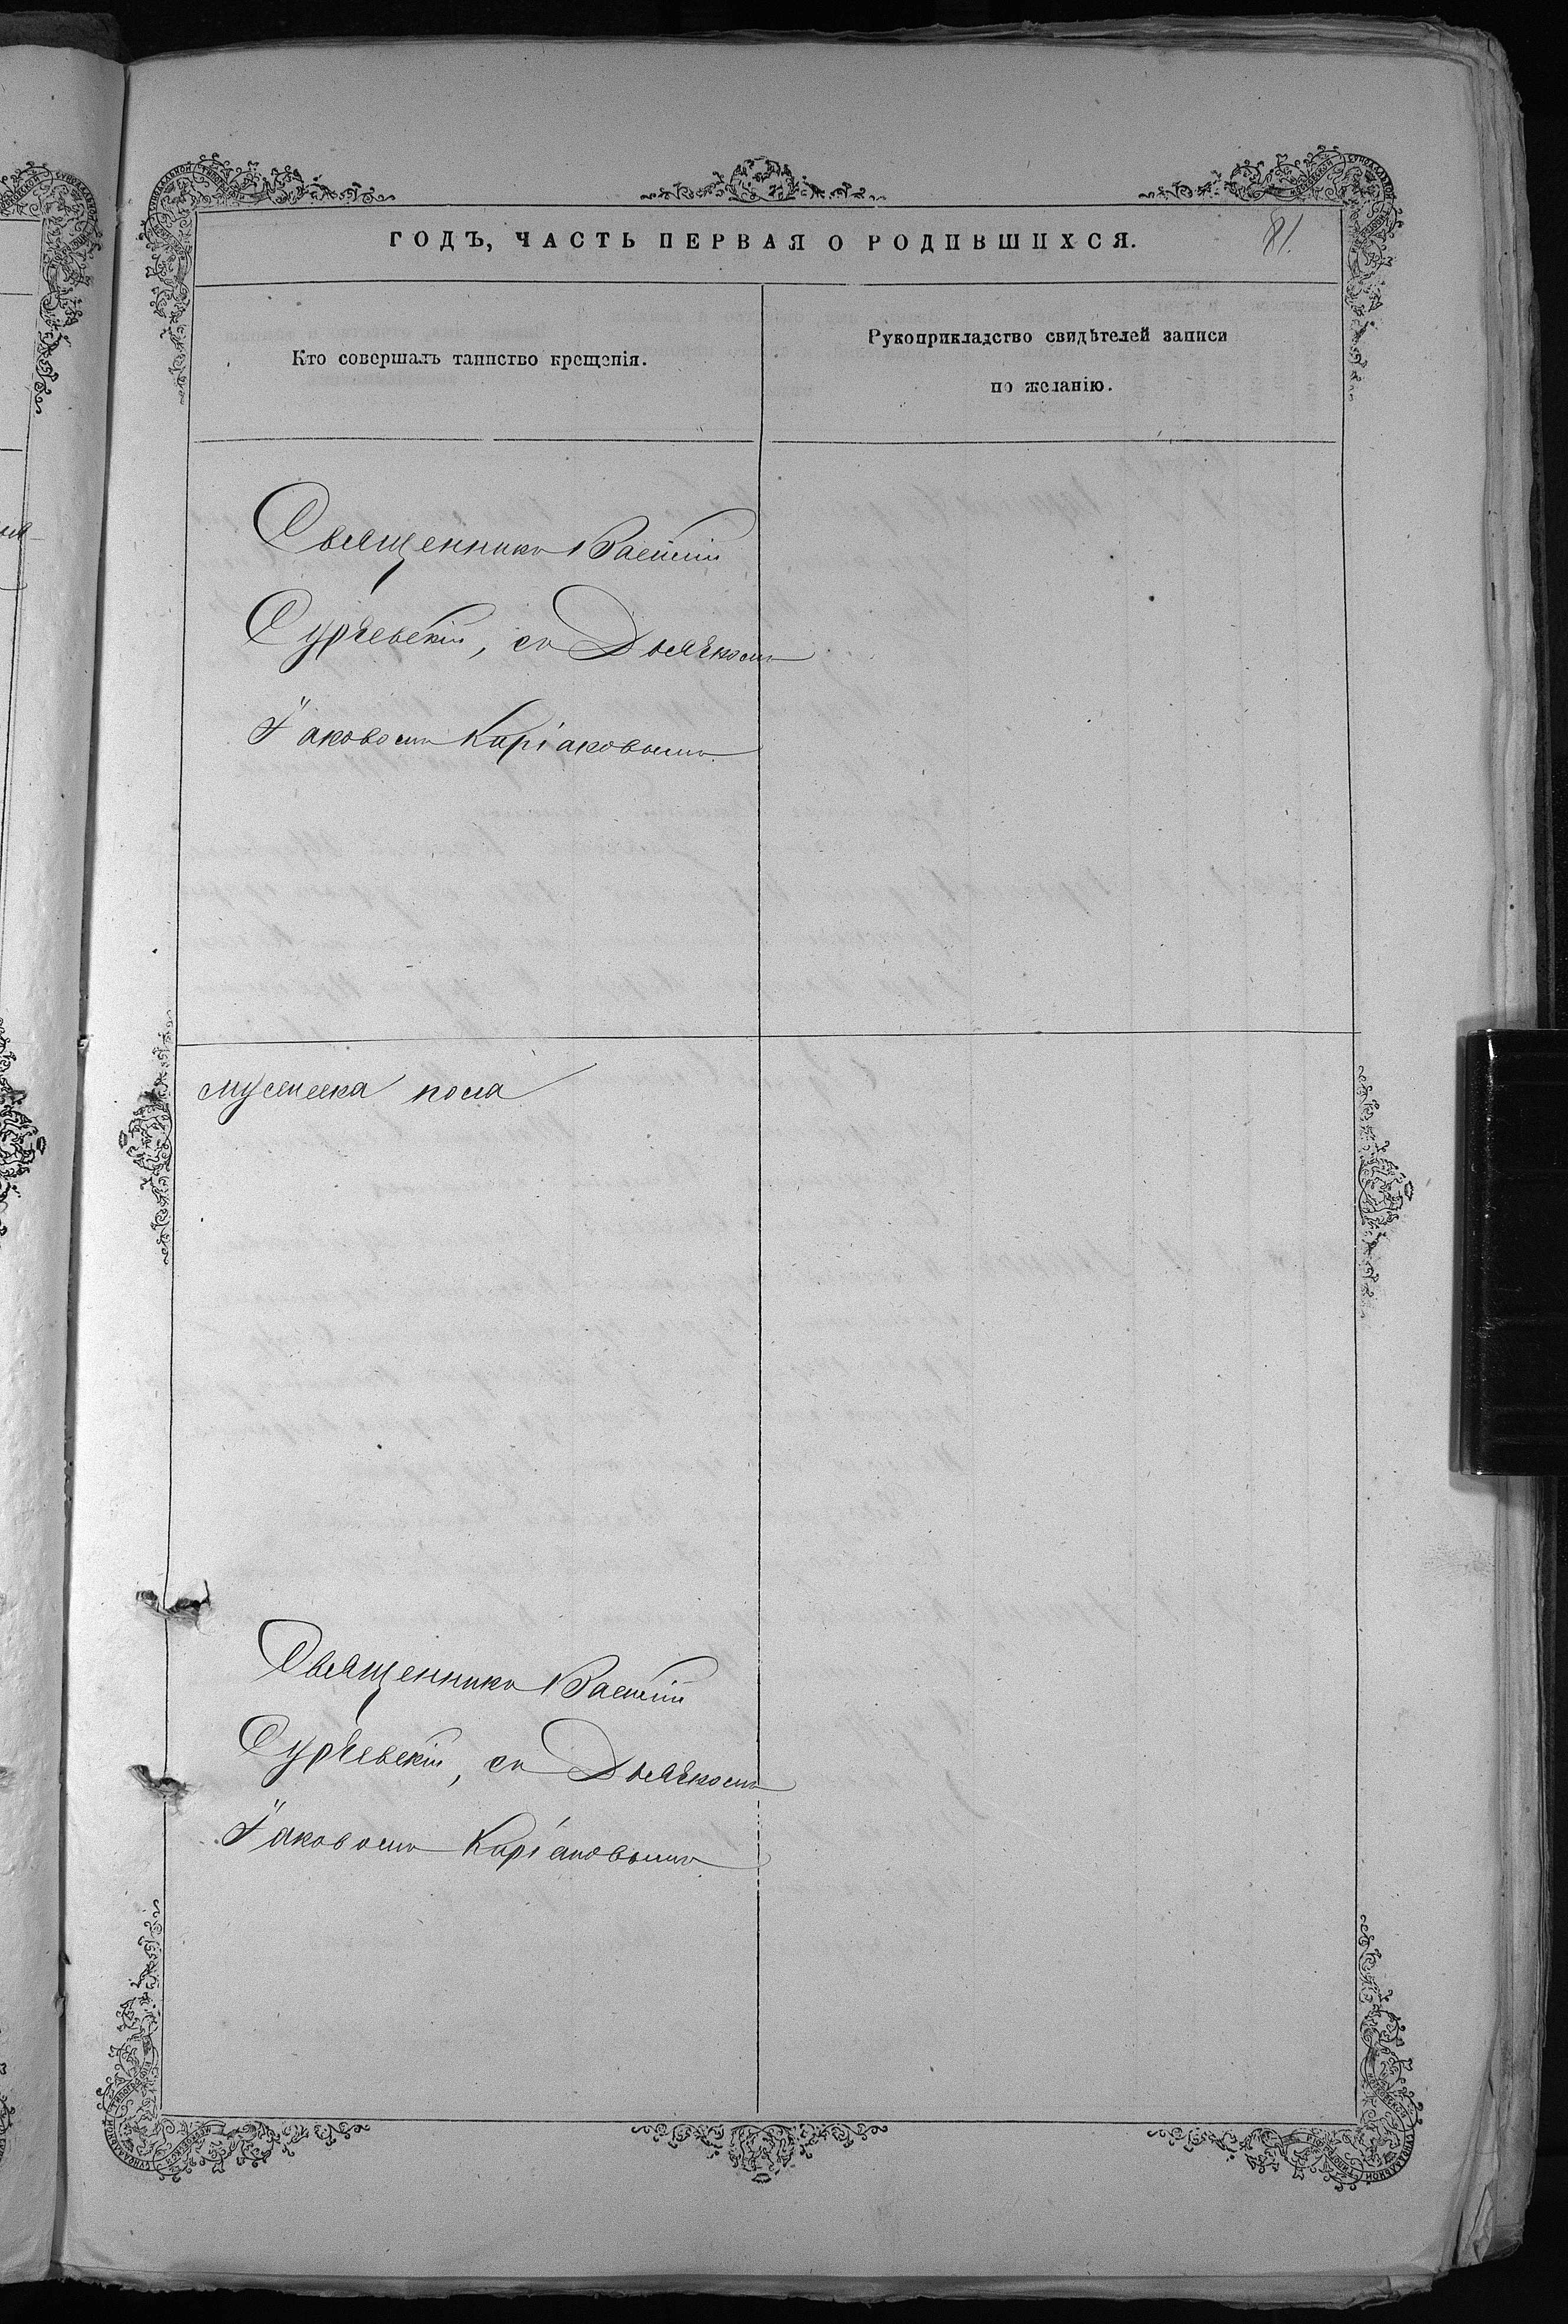 ГОДЪ, ЧАСТЬ ПЕРВАЯ О РОДИВШИХСЯ.
81.
Кто совершалъ таинство крещенія.
Рукоприкладство свидѣтелей записи
по желанію.
Священникъ Василій
Сурѣевскій, съ Дьячкомъ
Іаковомъ Киріаковымъ
мужеска пола
Священникъ Василій
Сурѣевскій, съ Дьячкомъ
Іаковомъ Киріаковымъ